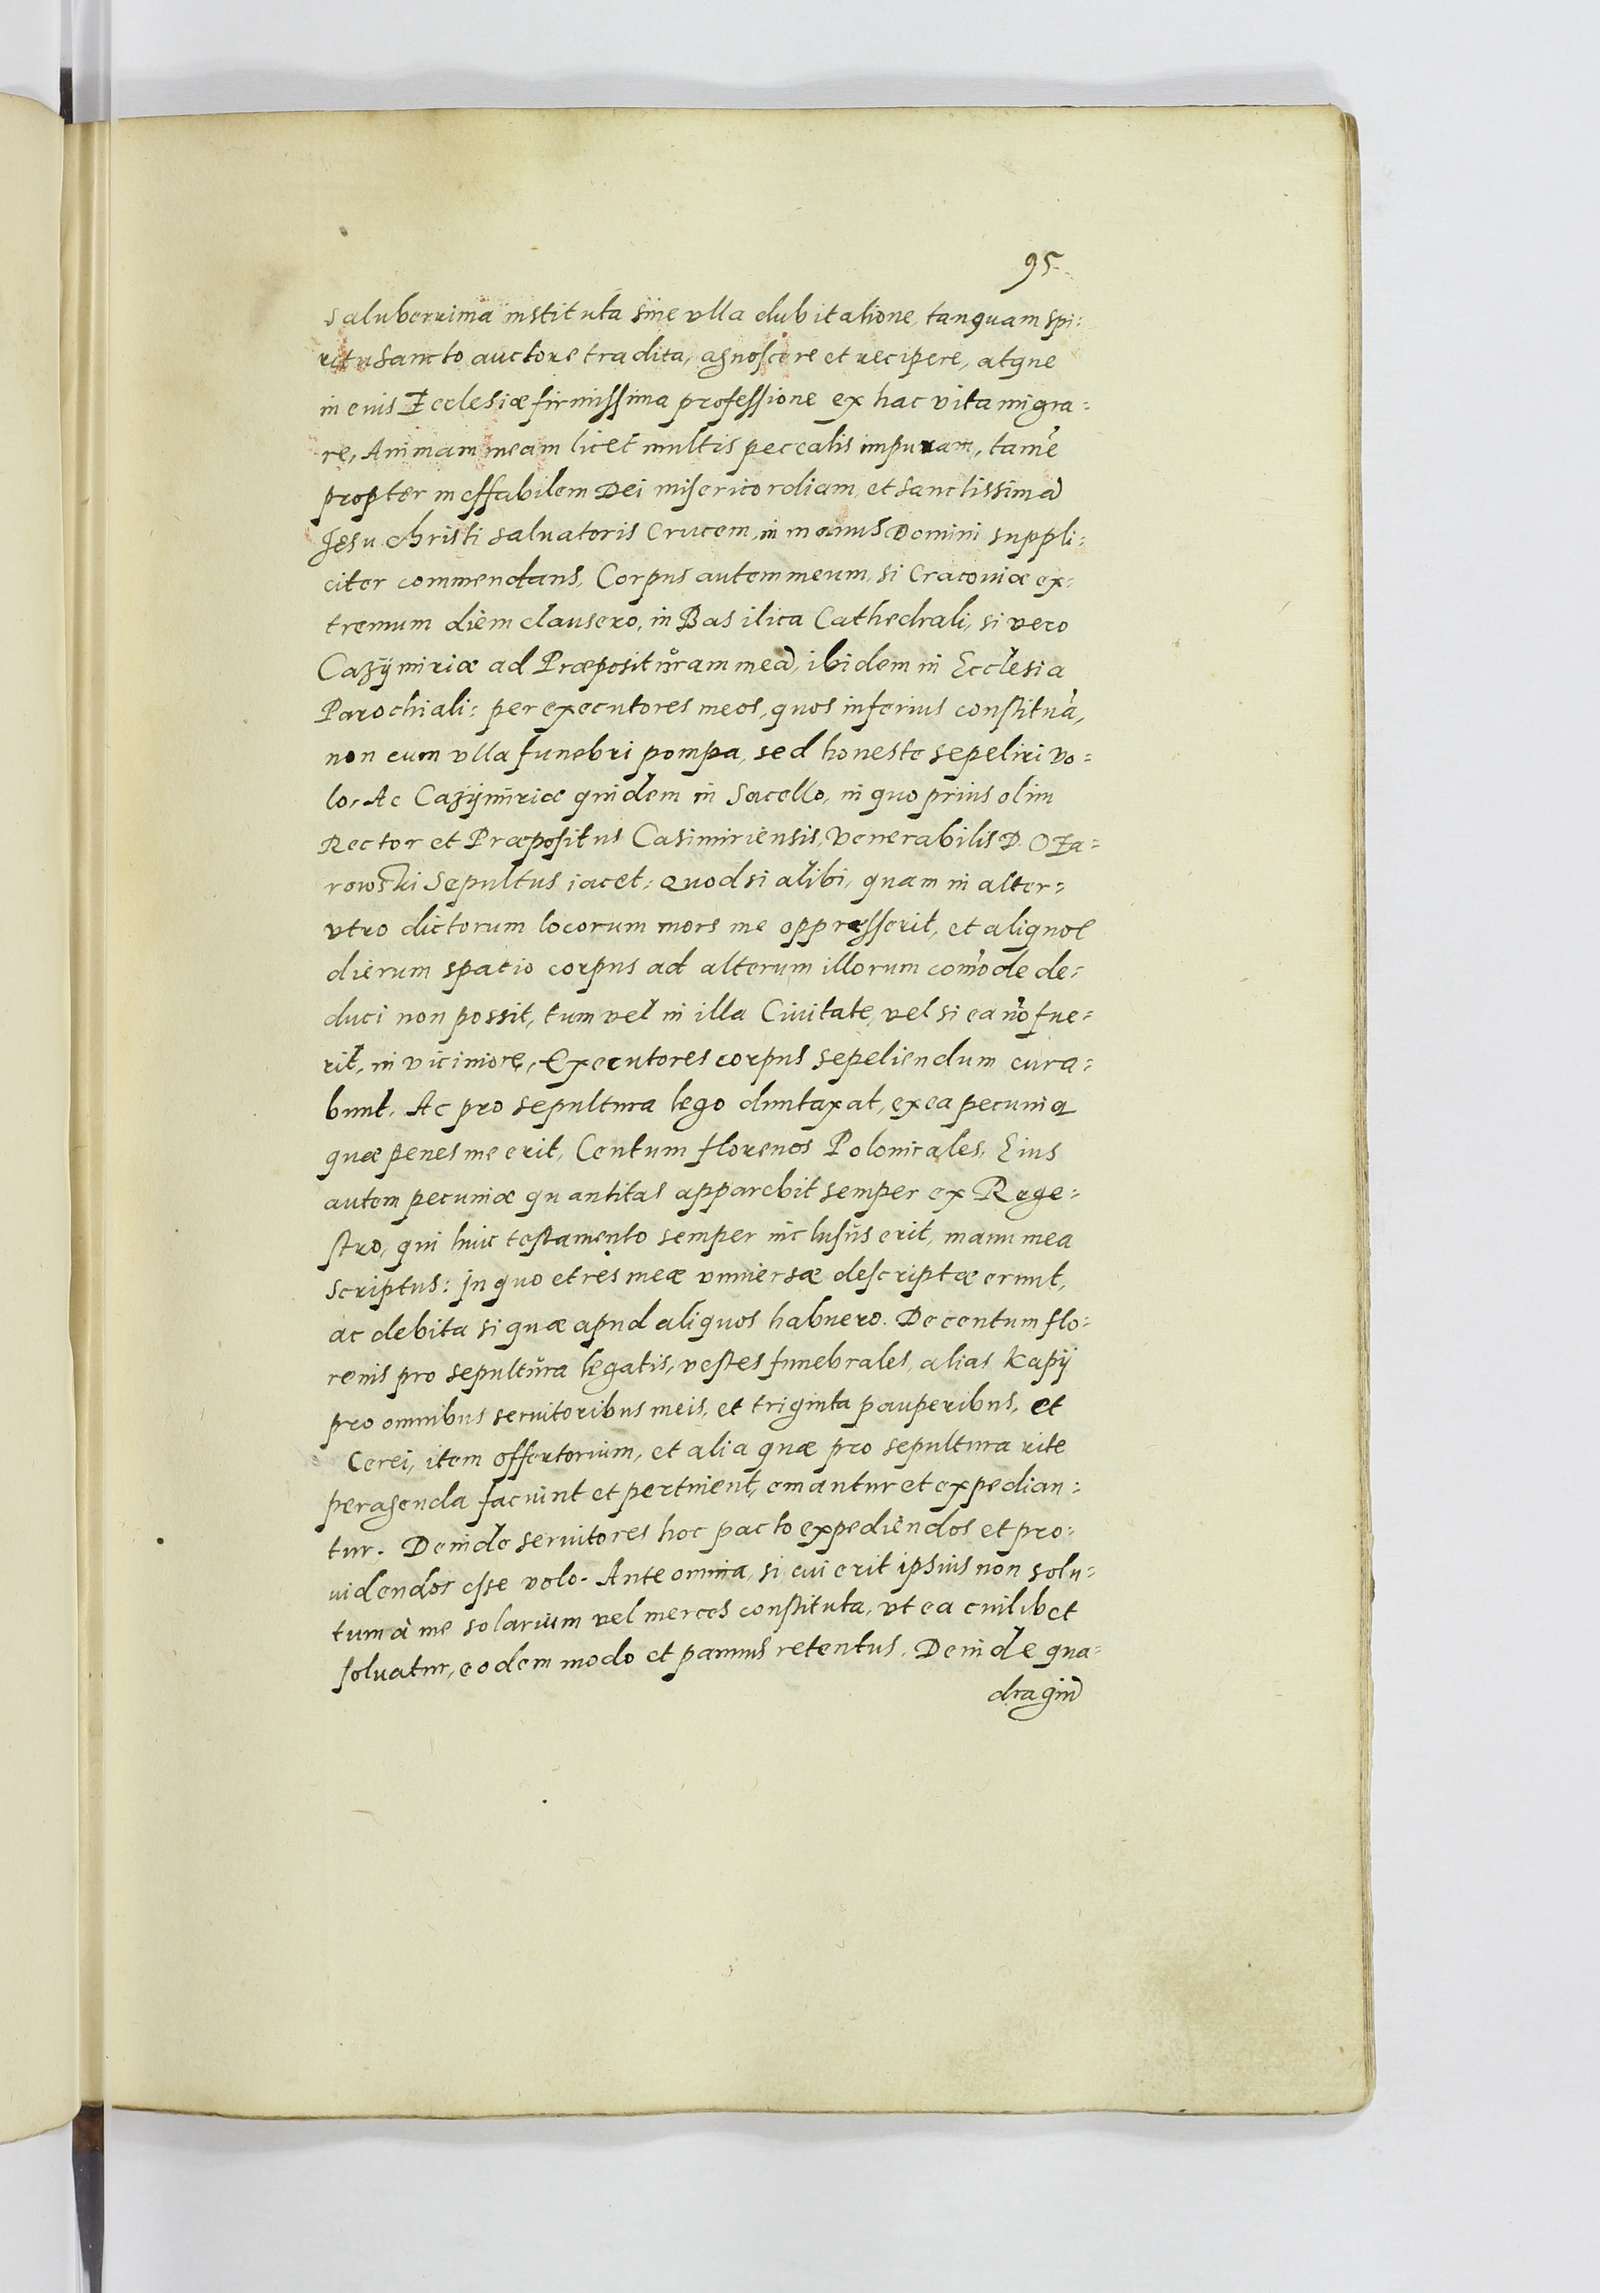 95.
saluberrima instituta sine vlla dubitatione, tanquam spi:
ritu sancto auctore tradita, agnoscere et recipere, atque
in euis Ecclesiæ firmissima professione ex hac vita migra:
re, Animam meam licet multis peccatis impuram, tamē
propter ineffabilem Dei misericordiam, et sanctissimā
Jesu Christi saluatoris Crucem, in manus Domini suppli:
citer commendans, Corpus autem meum, si Cracouiæ ex:
tremum diem clausero, in Basilica Cathedrali, si vero
Cazÿmiriæ ad Præposituram meā, ibidem in Ecclesia
Parochiali: per executores meos, quos inferius constituā,
non cum vlla funebri pompa, sed honeste sepeliri vo:
lo, Ac Cazÿmiriæ quidem in Sacello, in quo prius olim
Rector et Præpositus Casimiriensis, Venerabilis D. Oża:
rowski Sepultus iacet: quod si alibi, quam in alter:
vtro dictorum locorum mors me oppresserit, et aliquot
dierum spatio corpus ad alterum illorum com̄ode de:
duci non possit, tum vel in illa Ciuitate, vel si ea nō fue:
rit, in viciniore, Executores corpus sepeliendum cura:
bunt. Ac pro sepultura lego duntaxat, ex ea pecunia
quæ penes me erit, Centum florenos Polonicales, Eius
autem pecuniæ quantitas apparebit semper ex Rege:
stro, qui huic testamento semper inclusus erit, manu mea
scriptus: In quo et res meæ vniuersæ descriptæ erunt,
ac debita si quæ apud aliquos habuero. De centum flo:
renis pro sepultura legatis, vestes funebrales, alias Kapÿ
pro omnibus seruitoribus meis, et triginta pauperibus, et
Cerei, item offertorium, et alia quæ pro sepultura rite
peragenda faciunt et pertinent, emantur et expedian:
tur. Deinde seruitores hoc pacto expediendos et pro:
uidendos esse volo. Ante omnia, si cui erit ipsius non solu:
tum à me solarium vel merces constituta, vt ea cuilibet
soluatur, eodem modo et pannus retentus. Deinde qua:
dragin